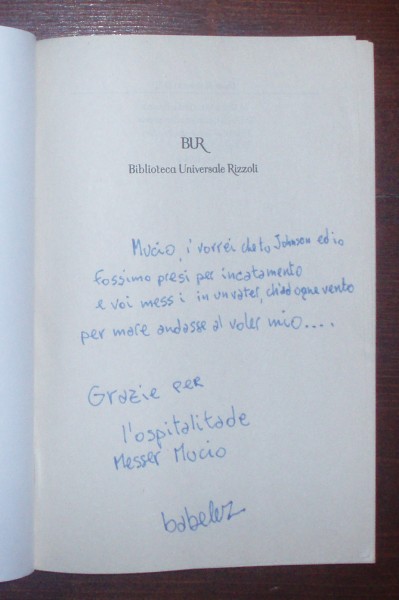 BUR
Biblioteca Universale Rizzoli
Mucio, i vorréi che tu Johnson ed io
fossimo presi per incatamento
e voi messi in un vater, ch'ad ogne vento
per mare andasse al voler mio....
Grazie per
l'ospitalitade
Messer Mucio
babelez